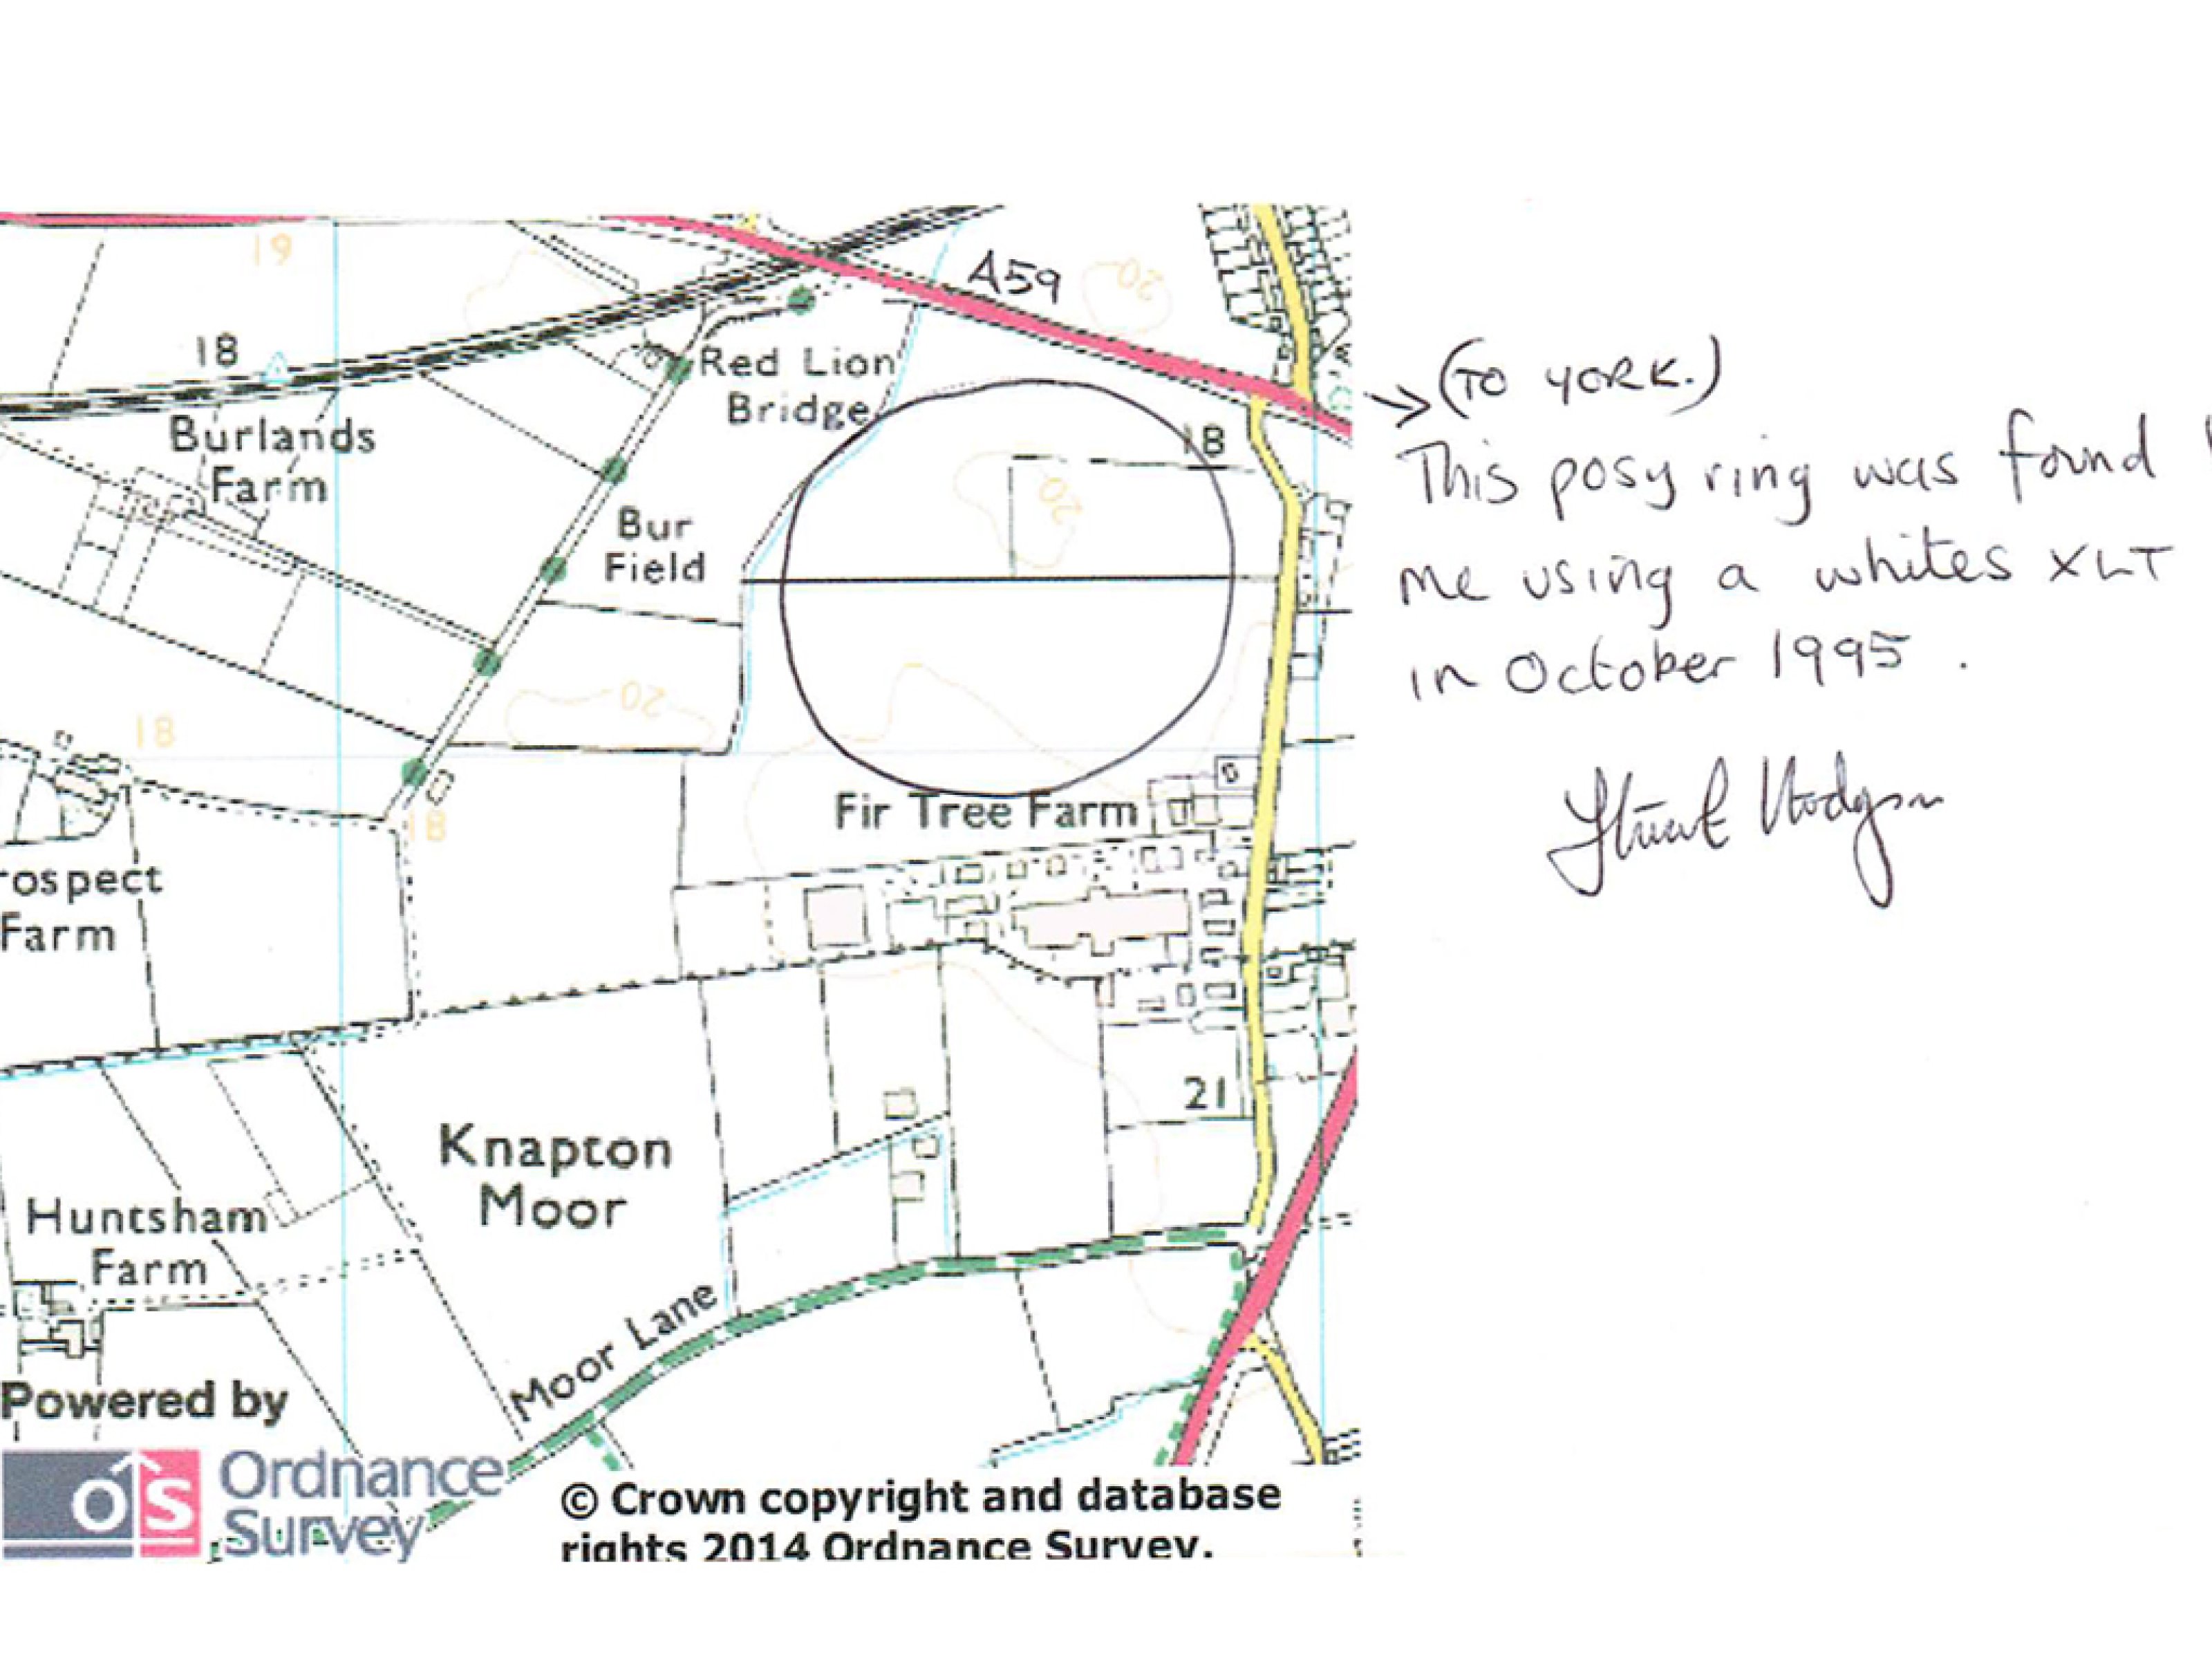 19
A59
20
18
Red Lion
Bridge
(TO YORK.)
Burlands
Farm
18
This posy ring was found
20
Bur
Field
me using a whites XLT
in October 1995.
20
18
Stuart Hodgson
Fir Tree Farm
18
rospect
Farm
21
Knapton
Moor
Huntsham
Farm
Moor Lane
Powered by
OS Ordnance
Survey
© Crown copyright and database
rights 2014 Ordnance Survey.